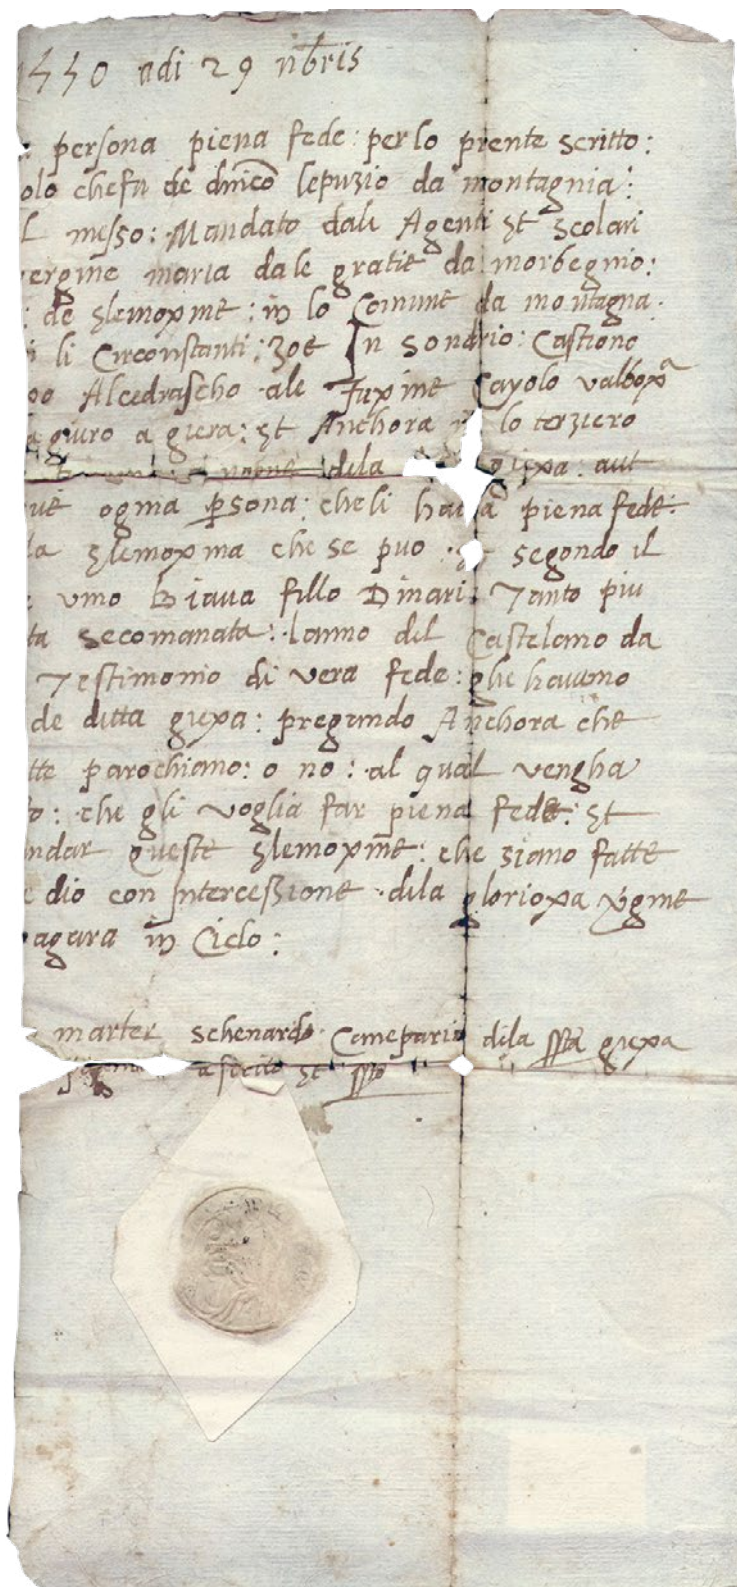 1550 adi 29 nbris
persona piena fede: per lo prente scritto:
olo che fu de dnico lepuzio da montagnia:
l messo: Mandato dali Agenti et scolari
vergine maria dale gratie da morbegnio:
: de elemoxine: in lo Comune da montagna.
i li Circonstanti: zoe In Sondrio: Castiono
po Alcedrascho ale Fuxine Cayolo valboxa
aguro a giera: et Anchora lo terziero
nome dila giexa: aut
ue ognia psona: che li ha piena fede:
la elemoxina che se puo: et segondo il
vino Biava fillo Dinari: Tanto piu
ta secomanata: lanno del Castelano da
Testimonio di vera fede: ghe havemo
de ditta giexa: pregando Anchora che
tte parochiano: o no: al qual vengha
to: che gli voglia far piena fede: et
ndar queste elemoxine: che siano fatte
e dio con intercessione dila glorioxa vgine
pagara in Cielo:
marter Schenardo Canepario dila ssta giexa
et ssto